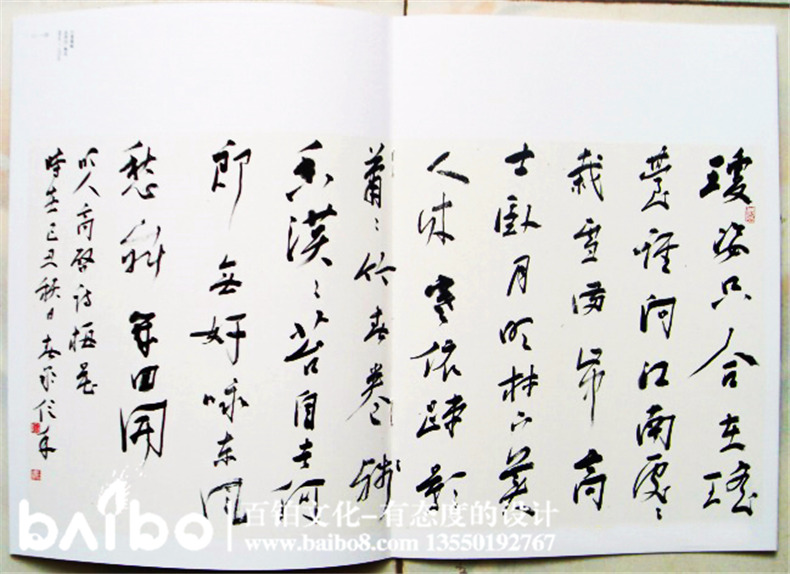 瓊姿只合在瑤
臺誰向江南處〻
栽雪滿山中高
士臥月明林下美
人來寒依疎影
蕭〻竹春掩殘
香漠〻苔自去何
郎無好咏東風
愁寂幾回開
明人高啓詩梅花
時在己丑秋日
baibo
百铂文化-有态度的设计
www.baibo8.com 13550192767